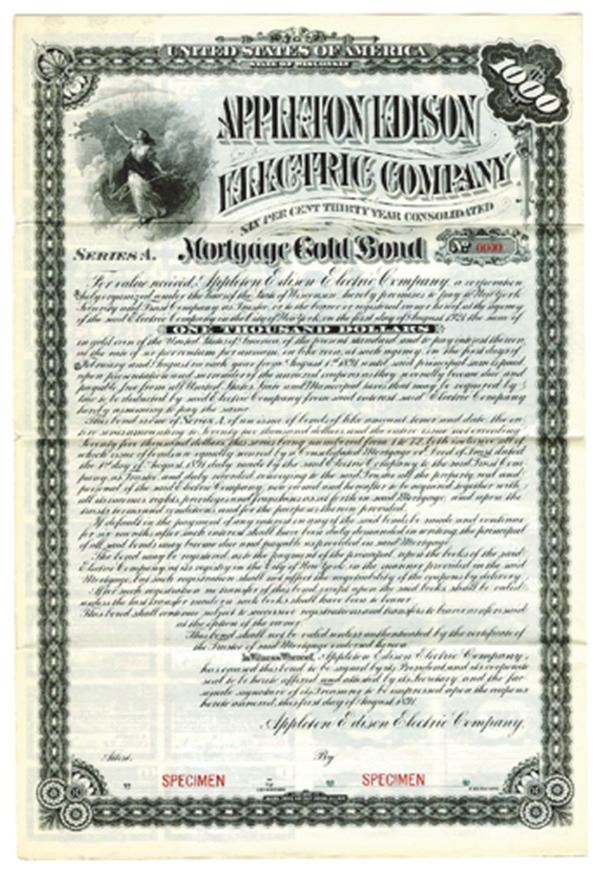 UNITED STATES OF AMERICA
STATE OF WISCONSIN
1000
APPLETON EDISON
ELECTRIC COMPANY
SIX PER CENT THIRTY YEAR CONSOLIDATED
SERIES A. Mortgage Gold Bond No 0000
For value received, Appleton Edison Electric Company, a corporation
duly organized under the law of the State of Wisconsin, hereby promises to pay to New York
Security and Trust Company as Trustee, or to the bearer or registered owner hereof, at the agency
of the said Electric Company in the City of New York, on the first day of August 1921, the sum of
ONE THOUSAND DOLLARS
in gold coin of the United States of America, of the present standard, and to pay interest thereon,
at the rate of six per centum per annum, in like coin, at such agency, on the first days of
February and August in each year from August 1st 1891, until said principal sum is paid,
upon presentation and surrender of the annexed coupons as they severally become due and
payable free from all United States, State and Municipal taxes that may be required by
law to be deducted by said Electric Company from said interest, said Electric Company
hereby assuming to pay the same.
This bond is one of Series A, of an issue of bonds of like amount, tenor and date, the en-
tire series amounting to Seventy two thousand dollars and the entire issue not exceeding
Seventy five thousand dollars, this series being numbered from 1 to 72, both inclusive, all of
which issue of bonds are equally secured by a Consolidated Mortgage or Deed of Trust dated
the 1st day of August 1891, duly made by the said Electric Company to the said Trust Com-
pany, as Trustee, and duly recorded conveying to the said Trustee all the property, real and
personal of the said Electric Company, now owned and hereafter to be acquired together with
all its income, rights, privileges and franchises as set forth in said Mortgage, and upon the
trusts, terms and conditions, and for the purposes therein provided.
If default in the payment of any interest on any of the said bonds be made and continue
for six months after such interest shall have been duly demanded in writing, the principal
of all said bonds may become due and payable as provided in said Mortgage.
This bond may be registered, as to the payment of the principal, upon the books of the said
Electric Company, at its registry in the City of New York in the manner provided in the said
Mortgage, but such registration shall not affect the negotiability of the coupons by delivery.
After such registration no transfer of this bond, except upon the said books shall be valid,
unless the last transfer made on such books shall have been to bearer.
This bond shall continue subject to successive registrations and transfers to bearer as aforesaid
at the option of the owner.
This bond shall not be valid unless authenticated by the certificate of
the Trustee of said Mortgage endorsed hereon.
In Witness Whereof, Appleton Edison Electric Company
has caused this bond to be signed by its President and its corporate
seal to be hereto affixed and attested by its Secretary and the fac-
simile signature of its Treasurer to be impressed upon the coupons
hereto annexed, this first day of August 1891.
Appleton Edison Electric Company,
Attest. By
SPECIMEN SPECIMEN